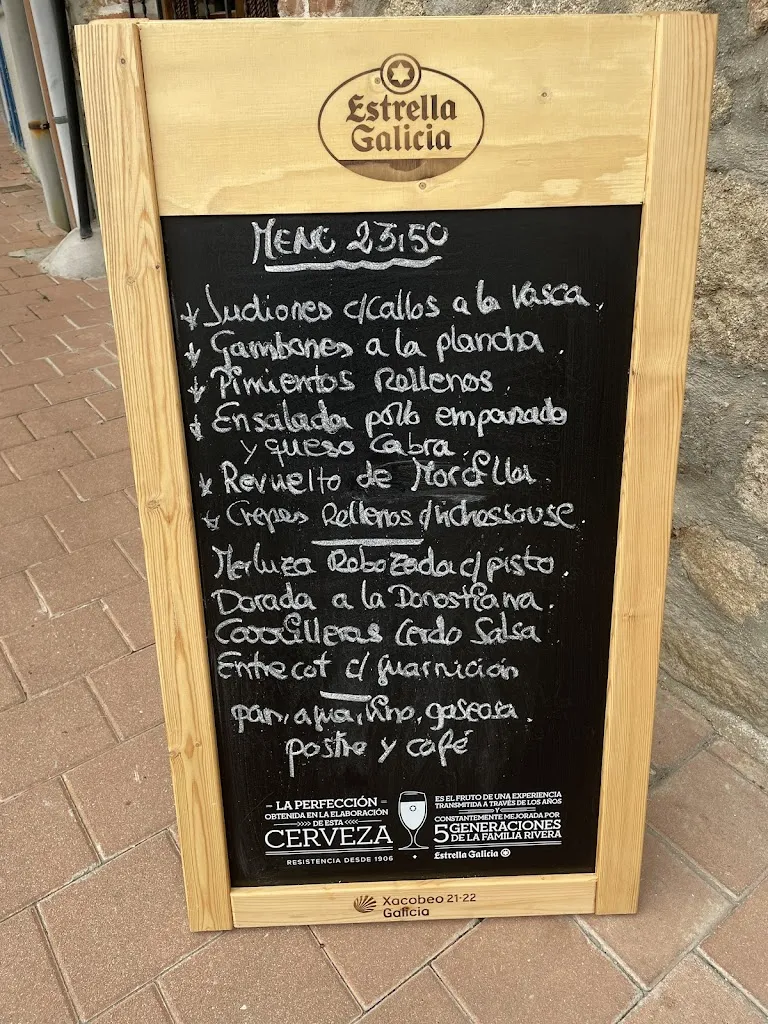 Estrella
Galicia
MENÚ 23,50
Judiones c/callos a la vasca.
Gambones a la plancha
Pimientos Rellenos.
Ensalada pollo empanado
y queso Cabra.
Revuelto de Morcilla.
Crepes Rellenos
Merluza Rebozada c/ pisto.
Dorada a la Donostiarra.
Carrilleras Cerdo Salsa
Entrecot c/ guarnición
pan, agua, vino, gaseosa.
postre y café
- LA PERFECCIÓN -
OBTENIDA EN LA ELABORACIÓN
DE ESTA
CERVEZA
RESISTENCIA DESDE 1906
ES EL FRUTO DE UNA EXPERIENCIA
TRANSMITIDA A TRAVÉS DE LOS AÑOS
Y
CONSTANTEMENTE MEJORADA POR
5 GENERACIONES
DE LA FAMILIA RIVERA
Estrella Galicia
Xacobeo 21·22
Galicia